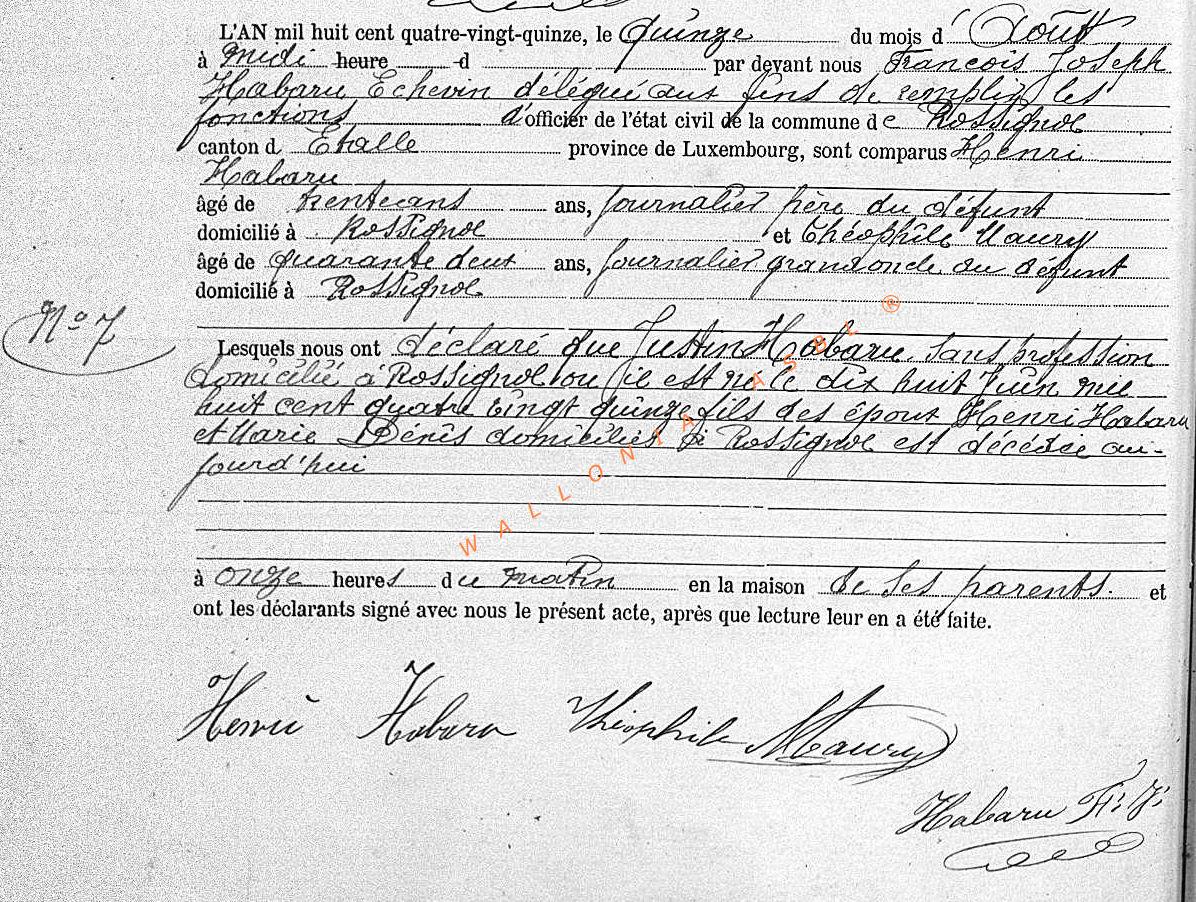 L'AN mil huit cent quatre-vingt-quinze, le quinze du mois d'Août
à midi heure d par devant nous François Joseph
Habaru Echevin délégué aux fins de remplir les
fonctions d'officier de l'état civil de la commune de Rossignol
canton d. Etalle province de Luxembourg, sont comparus Henri
Habaru
âgé de ans, journalier père du défunt
domicilié à Rossignol et Théophile Maury
âgé de quarante deux ans, journalier grand oncle du défunt
domicilié à Rossignol
N° 7
Lesquels nous ont déclaré que Justin Habaru sans profession
domicilié à Rossignol ou il est né le dix huit Juin mil
huit cent quatre vingt quinze fils des époux Henri Habaru
et Marie Dénis domiciliés à Rossignol est décédée au-
jourd'hui
WALLONIA ASBL ®
à onze heures du matin en la maison de ses parents. et
ont les déclarants signé avec nous le présent acte, après que lecture leur en a été faite.
Henri Habaru Théophile Maury
Habaru F. J.